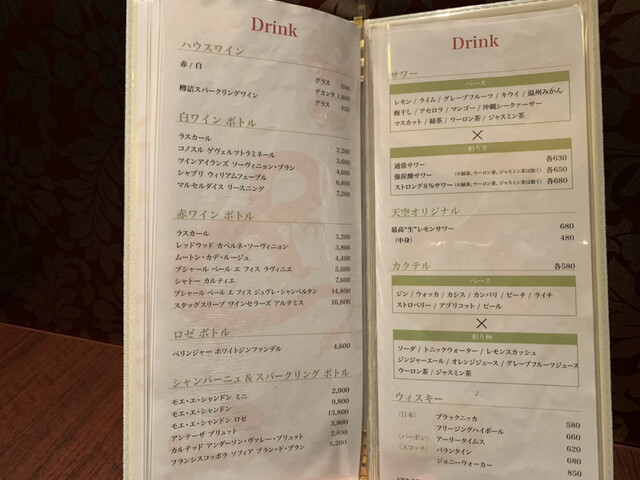 Drink
ハウスワイン
赤 / 白
グラス 600
デカンタ 1,800
樽詰スパークリングワイン
グラス 620
白ワイン ボトル
ラスカール 3,200
コノスル ゲヴェルツトラミネール 3,600
ツインアイランズ ソーヴィニョン・ブラン 4,600
シャブリ ウィリアムフェーブル 6,800
マルセルダイス リースニング 7,200
赤ワイン ボトル
ラスカール 3,200
レッドウッド カベルネ・ソーヴィニョン 3,800
ムートン・カデ・ルージュ 4,400
ブシャール ペール エ フィス ラヴィニエ 5,600
シャトー カルティエ 7,600
ブシャール ペール エ フィス ジュヴレ・シャンベルタン 14,800
スタッグスリープ ワインセラーズ アルテミス 16,800
ロゼ ボトル
ベリンジャー ホワイトジンファンデル 4,600
シャンパーニュ & スパークリング ボトル
モエ・エ・シャンドン ミニ 2,900
モエ・エ・シャンドン 9,800
モエ・エ・シャンドン ロゼ 13,800
アンテーザ ブリュット 3,800
カルテッド アンダーソン・ヴァレー・ブリュット 7,200
フランシスコッポラ ソフィア ブラン・ド・ブラン 8,200
Drink
サワー
ベース
レモン / ライム / グレープフルーツ / キウイ / 温州みかん
梅干し / アセロラ / マンゴー / 沖縄シークァーサー
マスカット / 緑茶 / ウーロン茶 / ジャスミン茶
×
割り方
通常サワー 各630
強炭酸サワー (※緑茶、ウーロン茶、ジャスミン茶は除く) 各650
ストロング8%サワー (※緑茶、ウーロン茶、ジャスミン茶は除く) 各680
天空オリジナル
最高“生”レモンサワー 680
(中身) 480
カクテル 各580
ベース
ジン / ウォッカ / カシス / カンパリ / ピーチ / ライチ
ストロベリー / アプリコット / ビール
×
割り物
ソーダ / トニックウォーター / レモンスカッシュ
ジンジャーエール / オレンジジュース / グレープフルーツジュース
ウーロン茶 / ジャスミン茶
ウィスキー
(日本) ブラックニッカ 580
フリージングハイボール 660
(バーボン) アーリータイムス 620
(スコッチ) バランタイン 680
ジョニーウォーカー 850